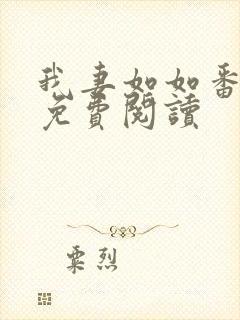 我妻如如番
免費閱讀
粟烈